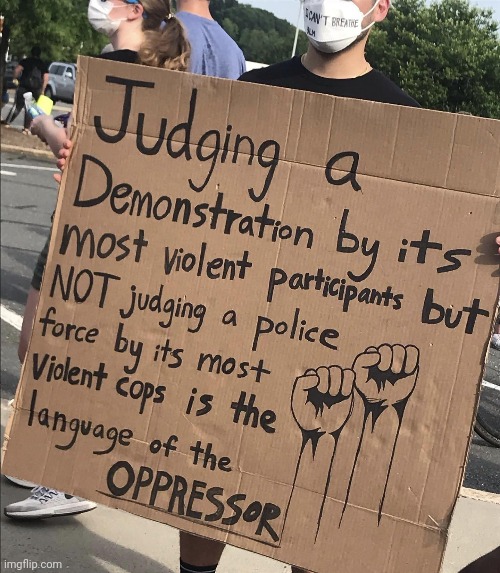 I CAN'T BREATHE
BLM
Judging a
Demonstration by its
most violent participants but
NOT judging a police
force by its most
Violent cops is the
language of the
OPPRESSOR
imgflip.com